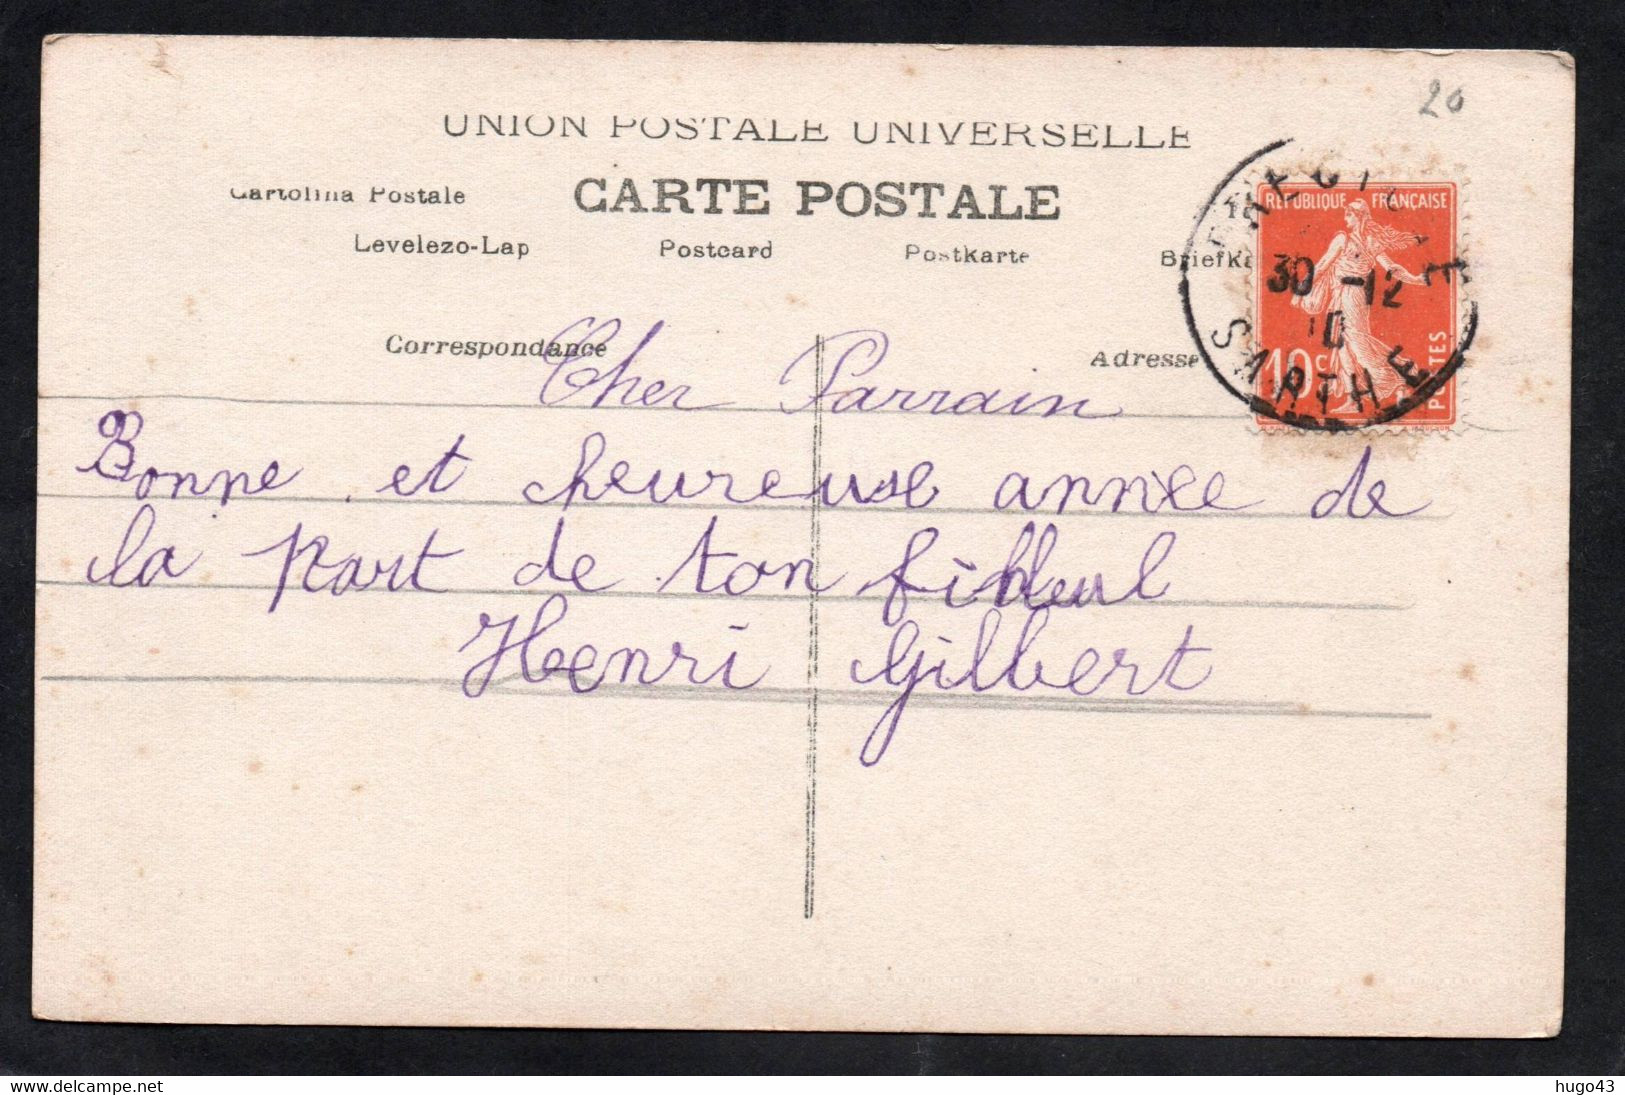 20
UNION POSTALE UNIVERSELLE
CARTE POSTALE
Cartolina Postale
Levelezo-Lap Postcard Postkarte Briefka
RÉPUBLIQUE FRANÇAISE
30 -12
10
SARTHE
10c
POSTES
Correspondance
Adresse
Cher Parrain
Bonne et heureuse année de
la part de ton filleul
Henri Gilbert
hugo43